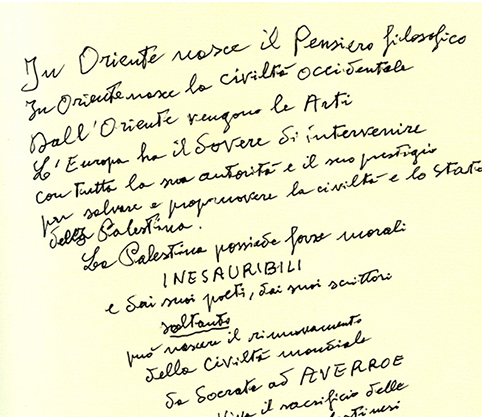 In Oriente nasce il Pensiero filosofico
In Oriente nasce la civiltà occidentale
Dall'Oriente vengono le Arti
L'Europa ha il Dovere di intervenire
con tutta la sua autorità e il suo prestigio
per salvare e promuovere la civiltà e lo Stato
della Palestina.
La Palestina possiede forze morali
INESAURIBILI
e dai suoi poeti, dai suoi scrittori
soltanto
può nascere il rinnovamento
della Civiltà mondiale
da Socrate ad AVERROE
Viva il sacrificio delle